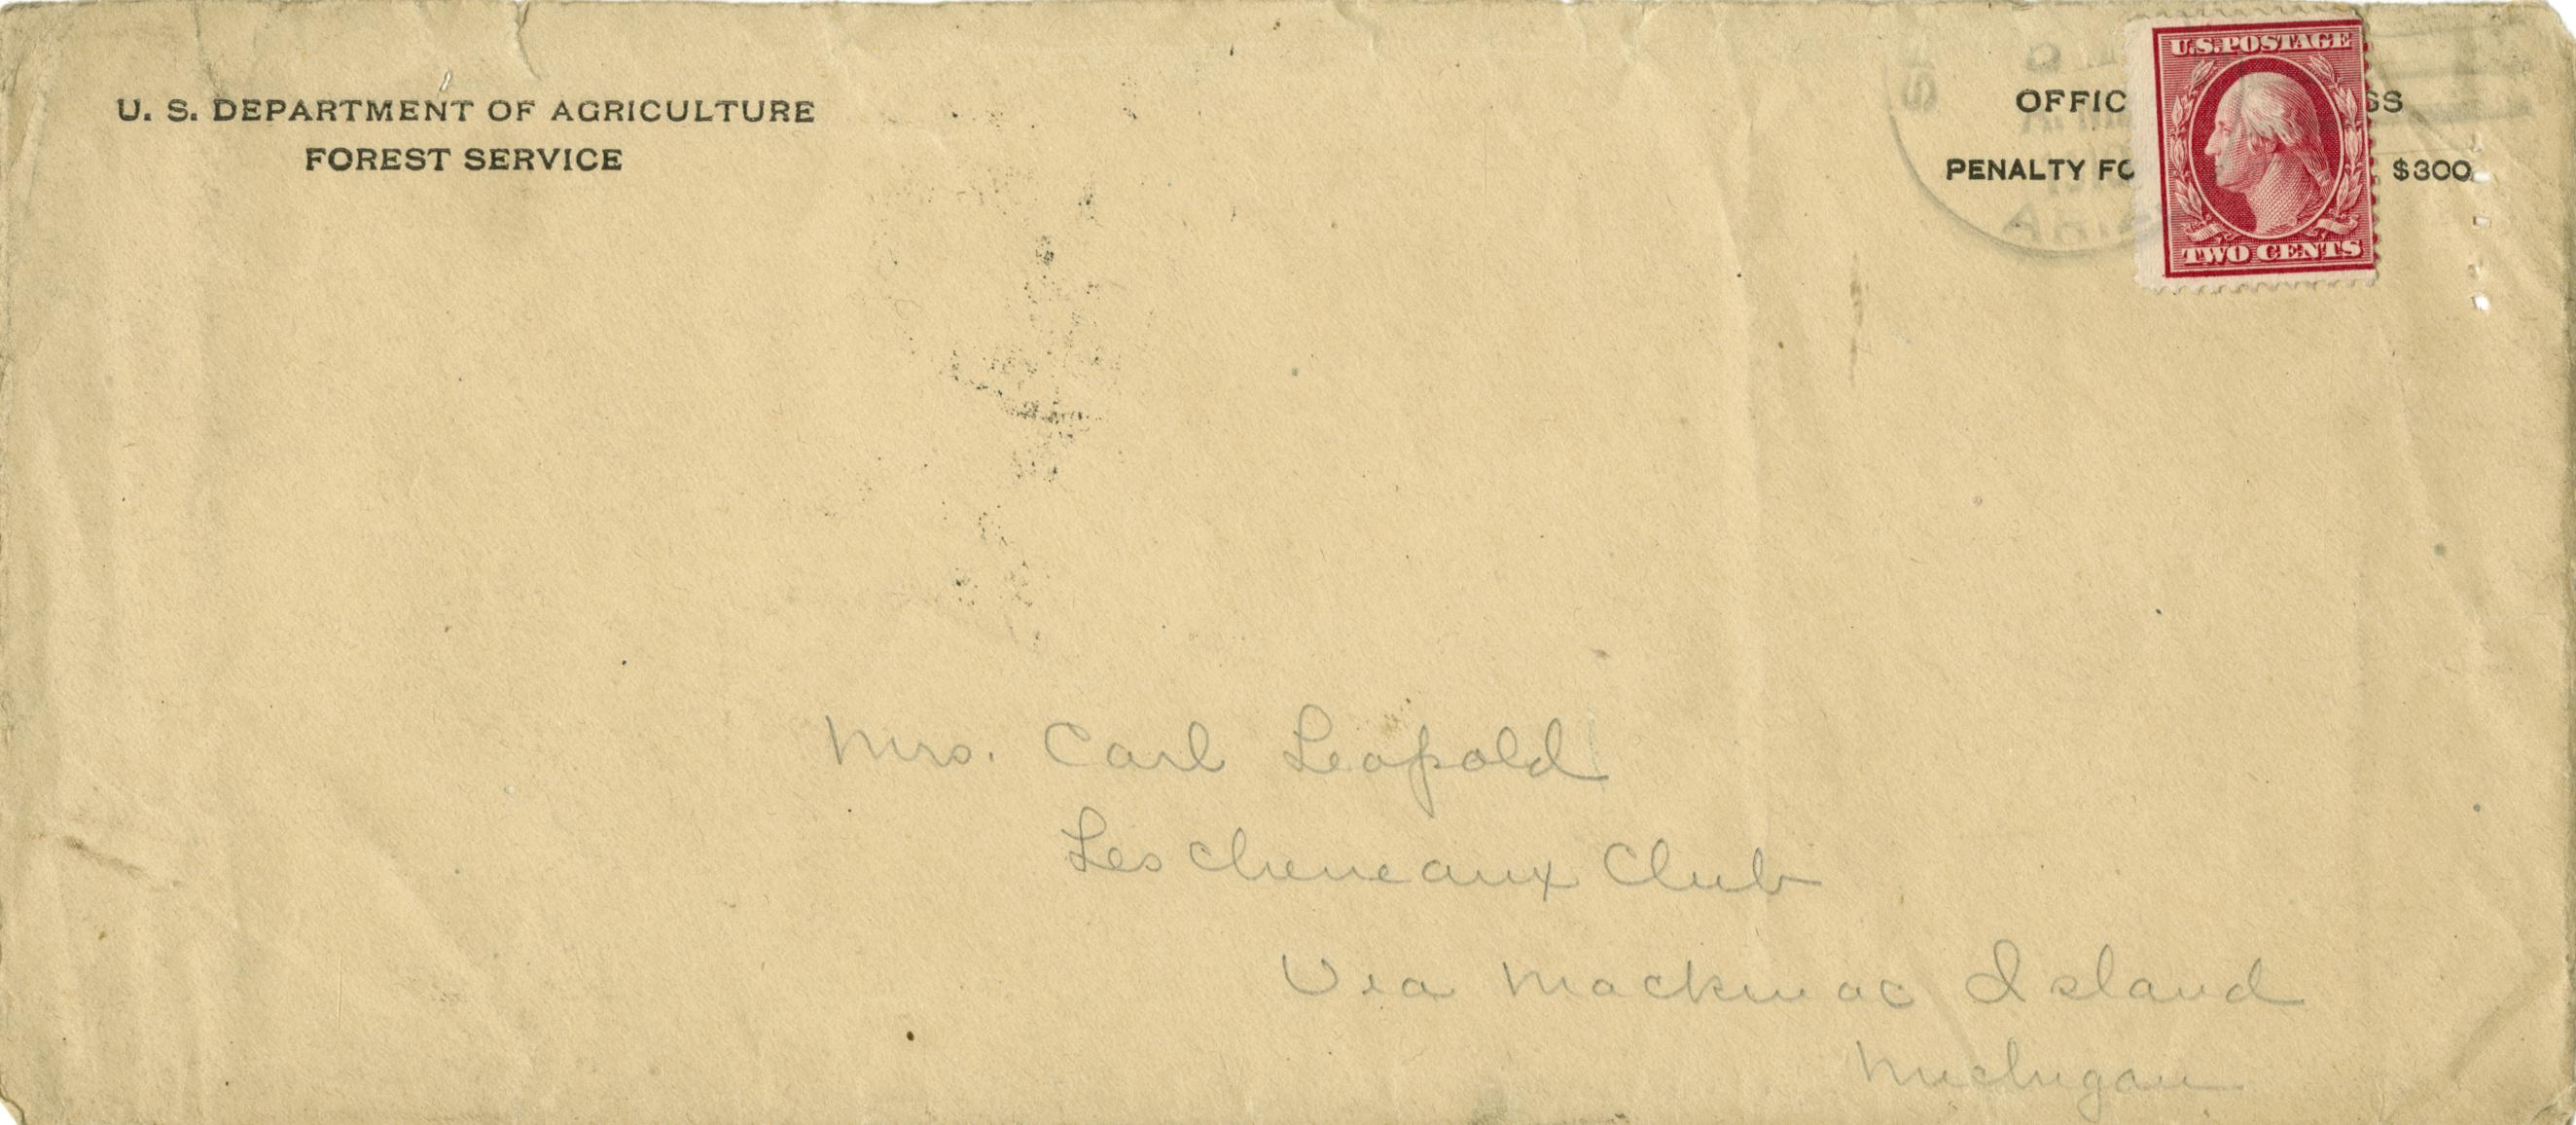 U. S. DEPARTMENT OF AGRICULTURE
FOREST SERVICE
OFFIC SS
PENALTY FO $300
U.S. POSTAGE
TWO CENTS
Mrs. Carl Leopold
Les Cheneaux Club
Via Mackinac Island
Michigan